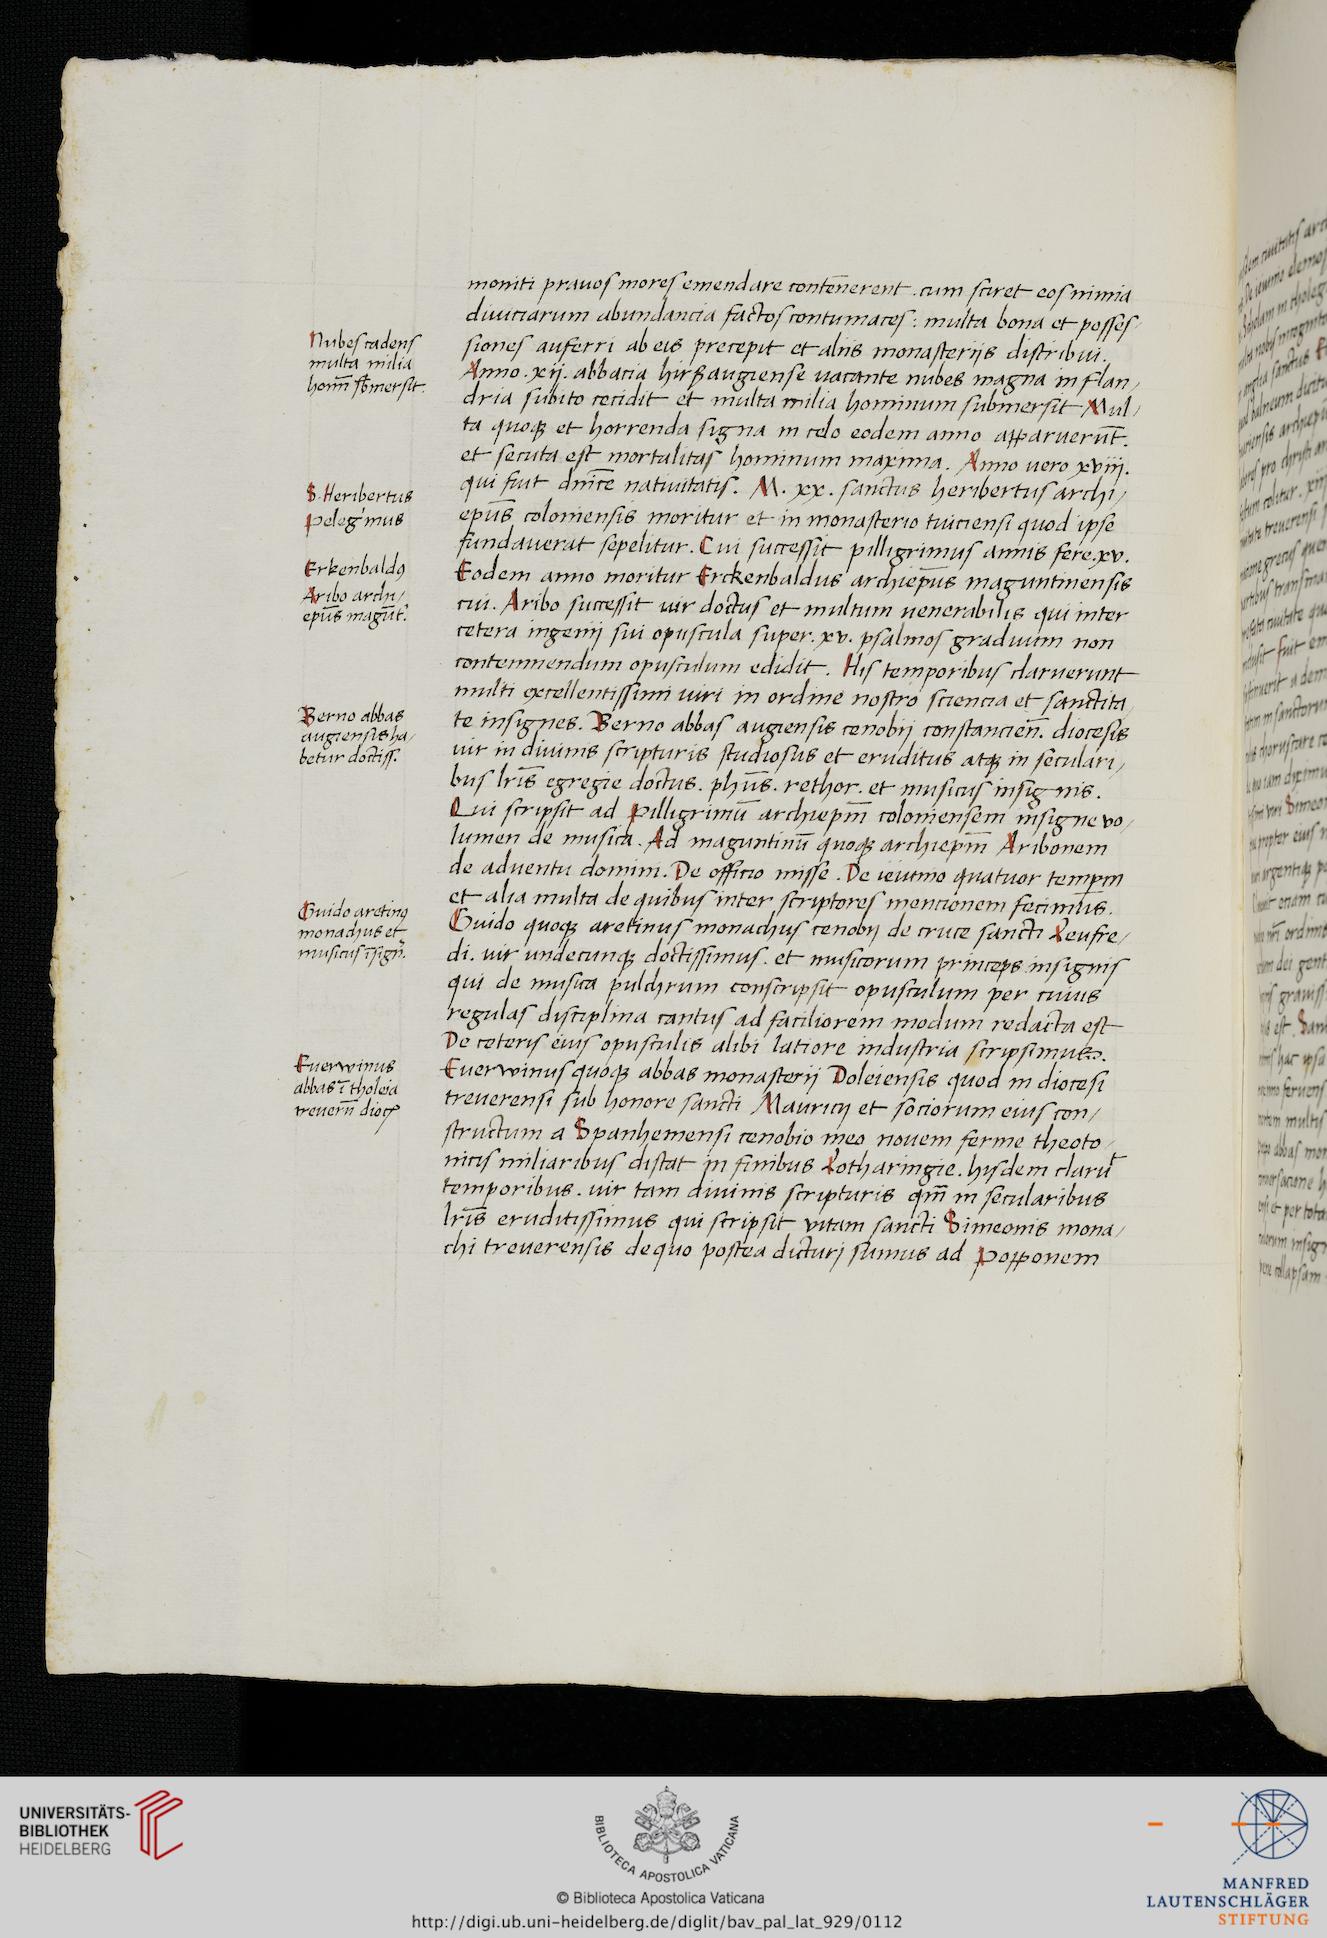 moniti prauos mores emendare contēnerent . cum sciret eos nimia
diuiciarum abundancia factos contumaces : multa bona et posses/
siones auferri ab eis precepit et aliis monasterijs distribui .
Anno . xij . abbacia hirßaugiense uacante nubes magna in flan/
dria subito cecidit et multa milia hominum submersit Mul/
ta quoqꝫ et horrenda signa in celo eodem anno apparuerūt .
et secuta est mortalitas hominum maxima . Anno uero xviij .
qui fuit dn̄ice natiuitatis . M . xx . sanctus heribertus archi/
ep̄us coloniensis moritur et in monasterio tuiciensi quod ipse
fundauerat sepelitur . Cui successit pilligrimus annis fere . xv .
Eodem anno moritur Erckenbaldus archiep̄us maguntinensis
cui . Aribo successit uir doctus et multum uenerabilis qui inter
cetera ingenij sui opuscula super . xv . psalmos graduum non
contemnendum opusculum edidit . His temporibus claruerunt
multi excellentissimi uiri in ordine nostro sciencia et sanctita/
te insignes . Berno abbas augiensis cenobij constancien̄ . diocesis
uir in diuinis scripturis studiosus et eruditus atqꝫ in seculari/
bus lr̄is egregie doctus . ph̄us . rethor . et musicus insignis .
Qui scripsit ad Pilligrimū archiep̄m coloniensem insigne vo/
lumen de musica . Ad maguntinū quoqꝫ archiep̄m Aribonem
de aduentu domini . De officio misse . De ieiunio quatuor temp̄m
et alia multa de quibus inter scriptores mencionem fecimus .
Guido quoqꝫ aretinus monachus cenobij de cruce sancti Leufre/
di . uir undecunqꝫ doctissimus . et musicorum princeps insignis
qui de musica pulchrum conscripsit opusculum per cuius
regulas disciplina cantus ad faciliorem modum redacta est
De ceteris eius opusculis alibi latiore industria scripsimus .
Euerwinus quoqꝫ abbas monasterij Doleiensis quod in diocesi
treuerensi sub honore sancti Mauricij et sociorum eius con/
structum a Spanhemensi cenobio meo nouem ferme theoto/
nicis miliaribus distat in finibus Lotharingie . hijsdem claru᷑
temporibus . uir tam diuinis scripturis qm̄ in secularibus
lr̄is eruditissimus qui scripsit vitam sancti Simeonis mona/
chi treuerensis de quo postea dicturi sumus ad Popponem
Nubes cadens
multa milia
hoīm sb̄mersit .
S . Heribertus
Peleg'mus
Erkenbaldꝰ
Aribo archi/
ep̄us magūt' .
Berno abbas
augiensis ha/
betur doctiss .
Guido aretinꝰ
monachus et
musicus īsigň .
Euerwinus
abbas ī tholeia
treuern̄ dioc̄
UNIVERSITÄTS-
BIBLIOTHEK
HEIDELBERG
BIBLIOTECA APOSTOLICA VATICANA
© Biblioteca Apostolica Vaticana
http://digi.ub.uni-heidelberg.de/diglit/bav_pal_lat_929/0112
MANFRED
LAUTENSCHLÄGER
STIFTUNG